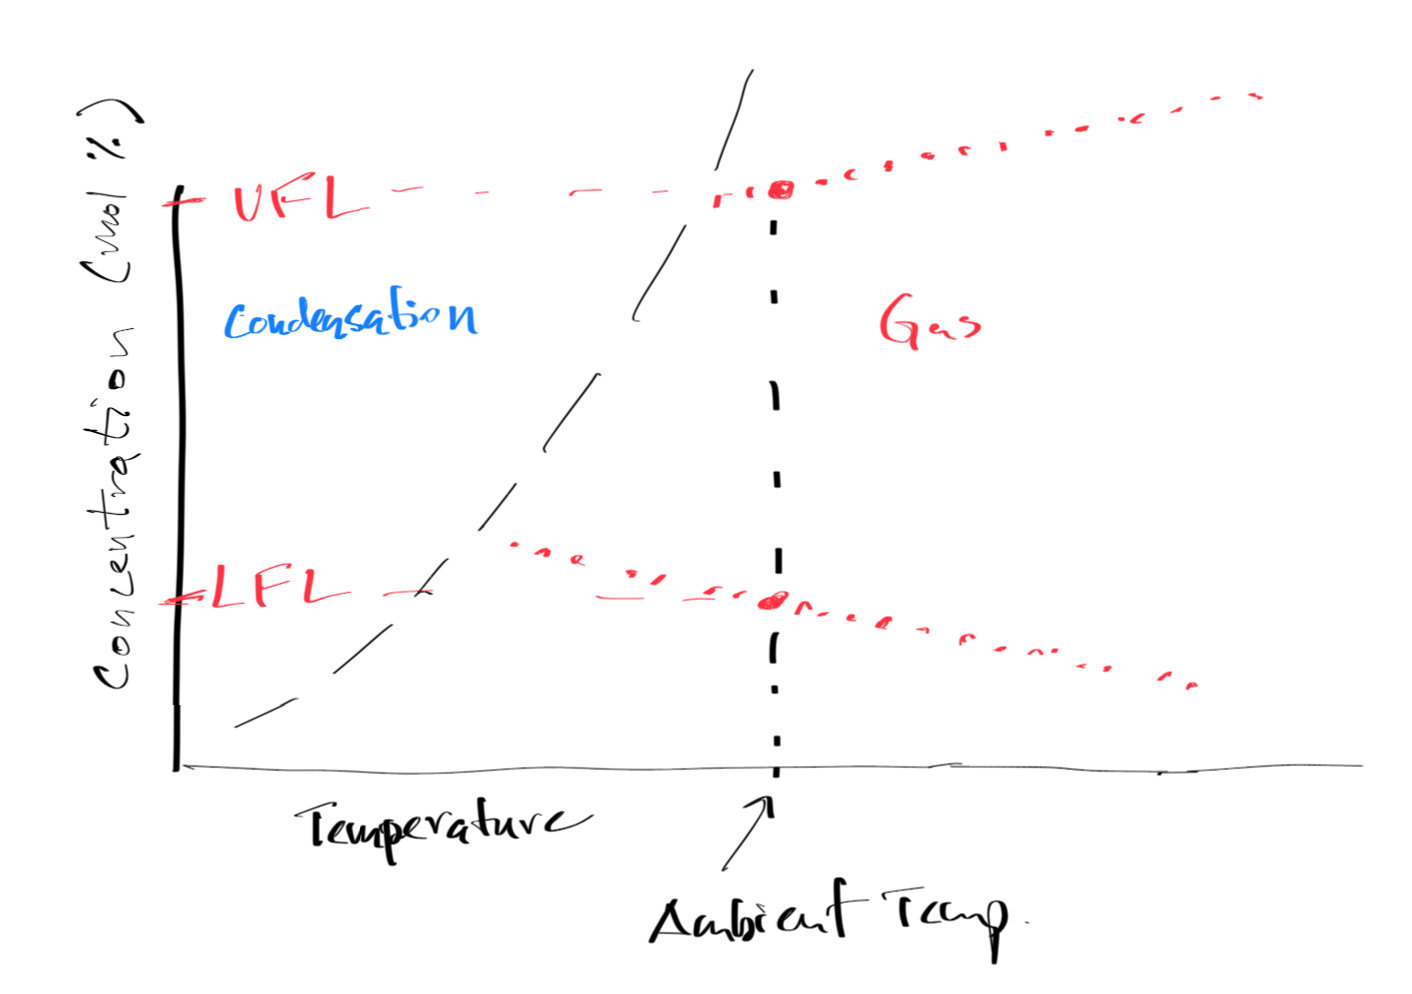 Concentration (mol %)
UFL
Condensation
Gas
LFL
Temperature
Ambient Temp.